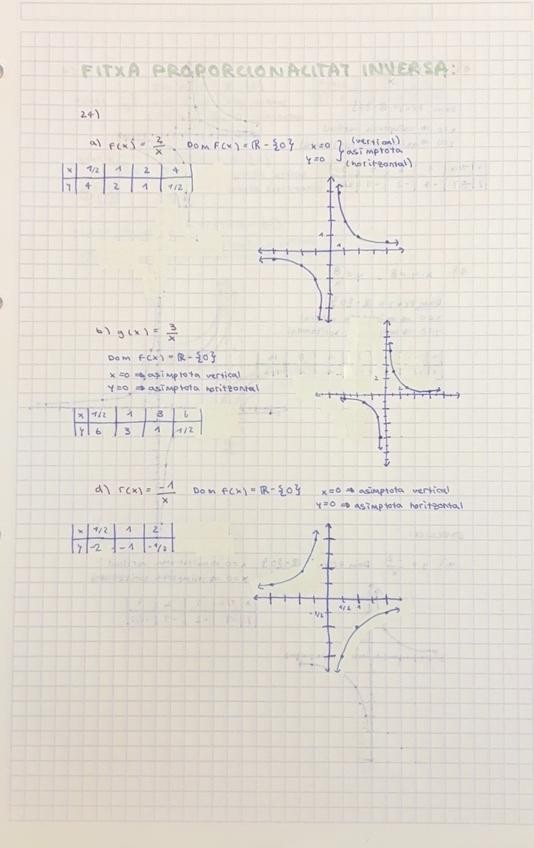 FITXA PROPORCIONALITAT INVERSA:
24)
a) f(x) = 2/x. Dom f(x) = ℝ - {0} x=0 (vertical)
y=0 } asímptota
(horitzontal)
x 1/2 1 2 4
y 4 2 1 1/2
1
1
b) g(x) = 3/x
Dom f(x) = ℝ - {0}
x=0 ⇒ asímptota vertical
y=0 ⇒ asímptota horitzontal
x 1/2 1 3 6
y 6 3 1 1/2
2
2
d) r(x) = -1/x Dom f(x) = ℝ - {0} x=0 ⇒ asímptota vertical
y=0 ⇒ asímptota horitzontal
x 1/2 1 2
y -2 -1 -1/2
-1/2
1/2 1